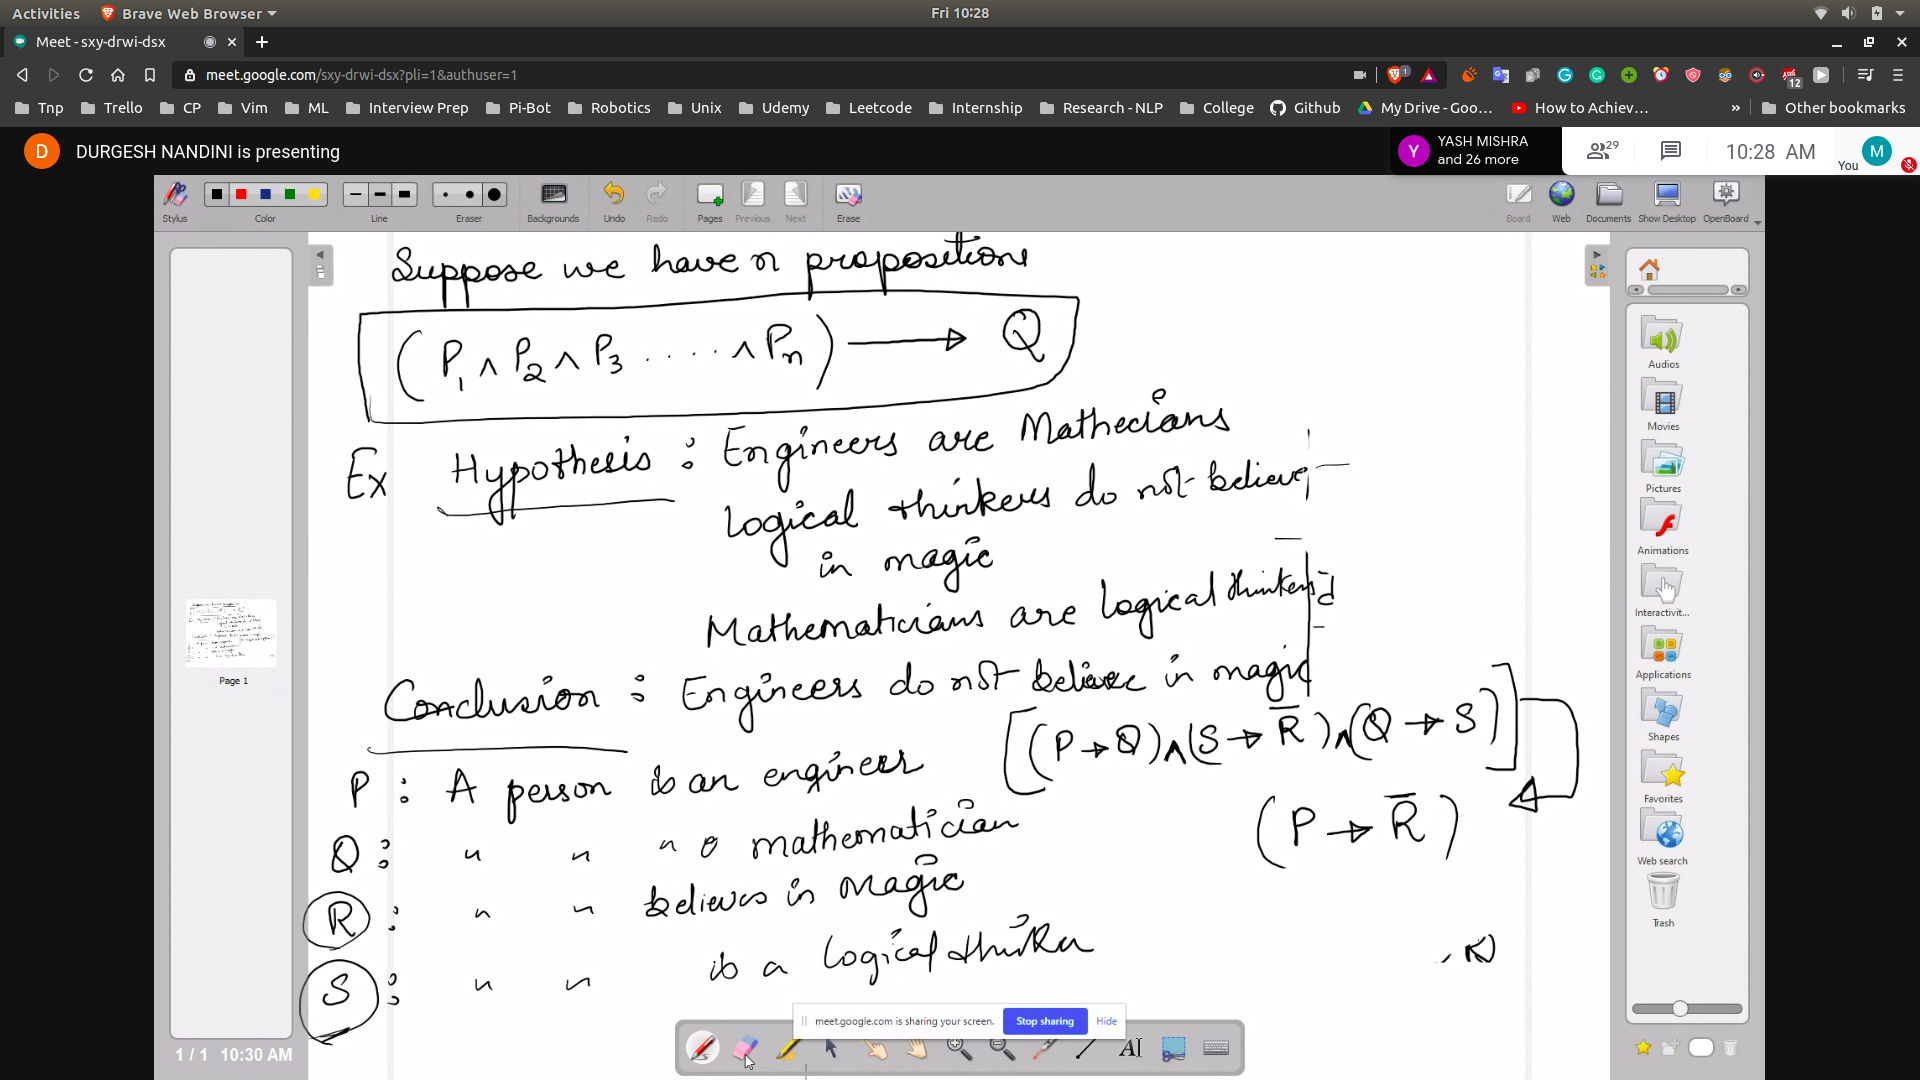 Activities
Brave Web Browser
Fri 10:28
Meet - sxy-drwi-dsx
meet.google.com/sxy-drwi-dsx?pli=1&authuser=1
1
12
Tnp Trello CP Vim ML Interview Prep Pi-Bot Robotics Unix Udemy Leetcode Internship Research - NLP College Github My Drive - Goo... How to Achiev... » Other bookmarks
D DURGESH NANDINI is presenting
Y YASH MISHRA
and 26 more
29
10:28 AM
You M
Stylus Color Line Eraser Backgrounds Undo Redo Pages Previous Next Erase Board Web Documents Show Desktop OpenBoard
Suppose we have n propositions
(P1 ∧ P2 ∧ P3 ..... ∧ Pn) → Q
Ex Hypothesis : Engineers are Mathecians
Logical thinkers do not believe
in magic
Mathematicians are logical thinkers
Conclusion : Engineers do not believe in magic
[(P → Q) ∧ (S → R̅) ∧ (Q → S)]
(P → R̅)
P : A person is an engineer
Q : " " " a mathematician
R : " " believes in magic
S : " " is a logical thinker
Page 1
Audios
Movies
Pictures
Animations
Interactivit...
Applications
Shapes
Favorites
Web search
Trash
meet.google.com is sharing your screen. Stop sharing Hide
1 / 1 10:30 AM
AI